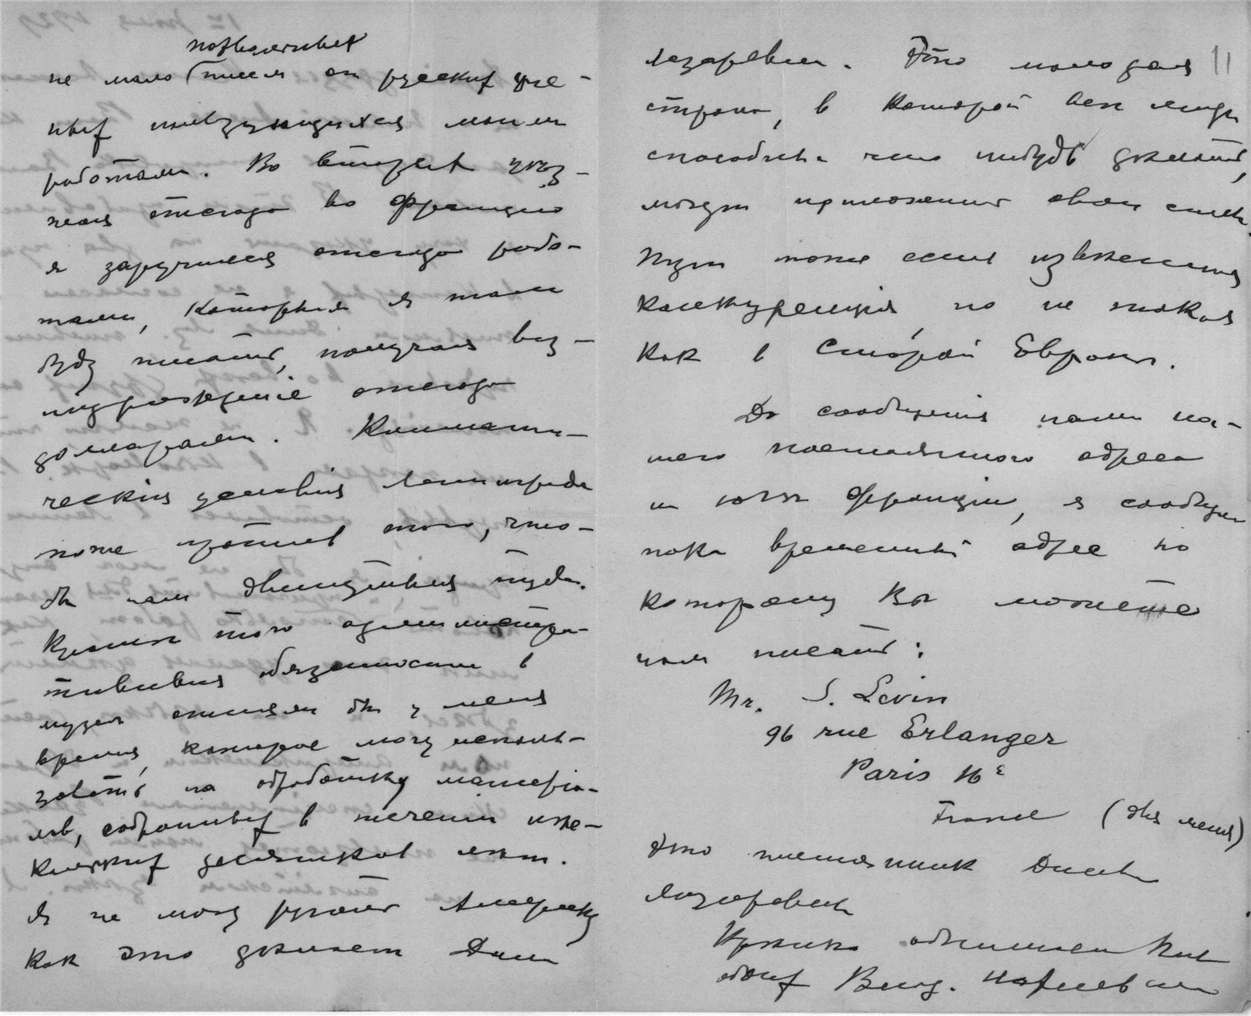 похвальных
не мало писем от русских уче-
ных интересующихся моими
работами. Во вторых уез-
жая отсюда во Францию
я заручился отсюда рабо-
тами, которыя я там
буду писать, получая воз-
награждение отсюда
долларами. Климати-
ческия условия Ленинграда
тоже против того, что-
бы нам двинуться туда.
Кроме того администра-
тивныя обязанности в
музее отняли бы у меня
время, которое могу исполь-
зовать на обработку материа-
лов, собранных в течении не-
скольких десятков лет.
Я не могу ругать Америку
как это делает Даша
Лазаревна. Это молодая 11
страна, в которой все люди
способные что нибудь делать,
могут приложить свои силы.
Тут тоже есть известная
конкуренция, но не такая
как в старой Европе.
До сообщения вам на-
шего постоянного адреса
на юге Франции, я сообщаю
пока временный адрес по
которому Вы можете
нам писать:
Mr. S. Levin
96 rue Erlanger
Paris 16e
France (для меня)
Это племянник
Лазаревны
Крепко обнимаем Вас
обоих Ваш.